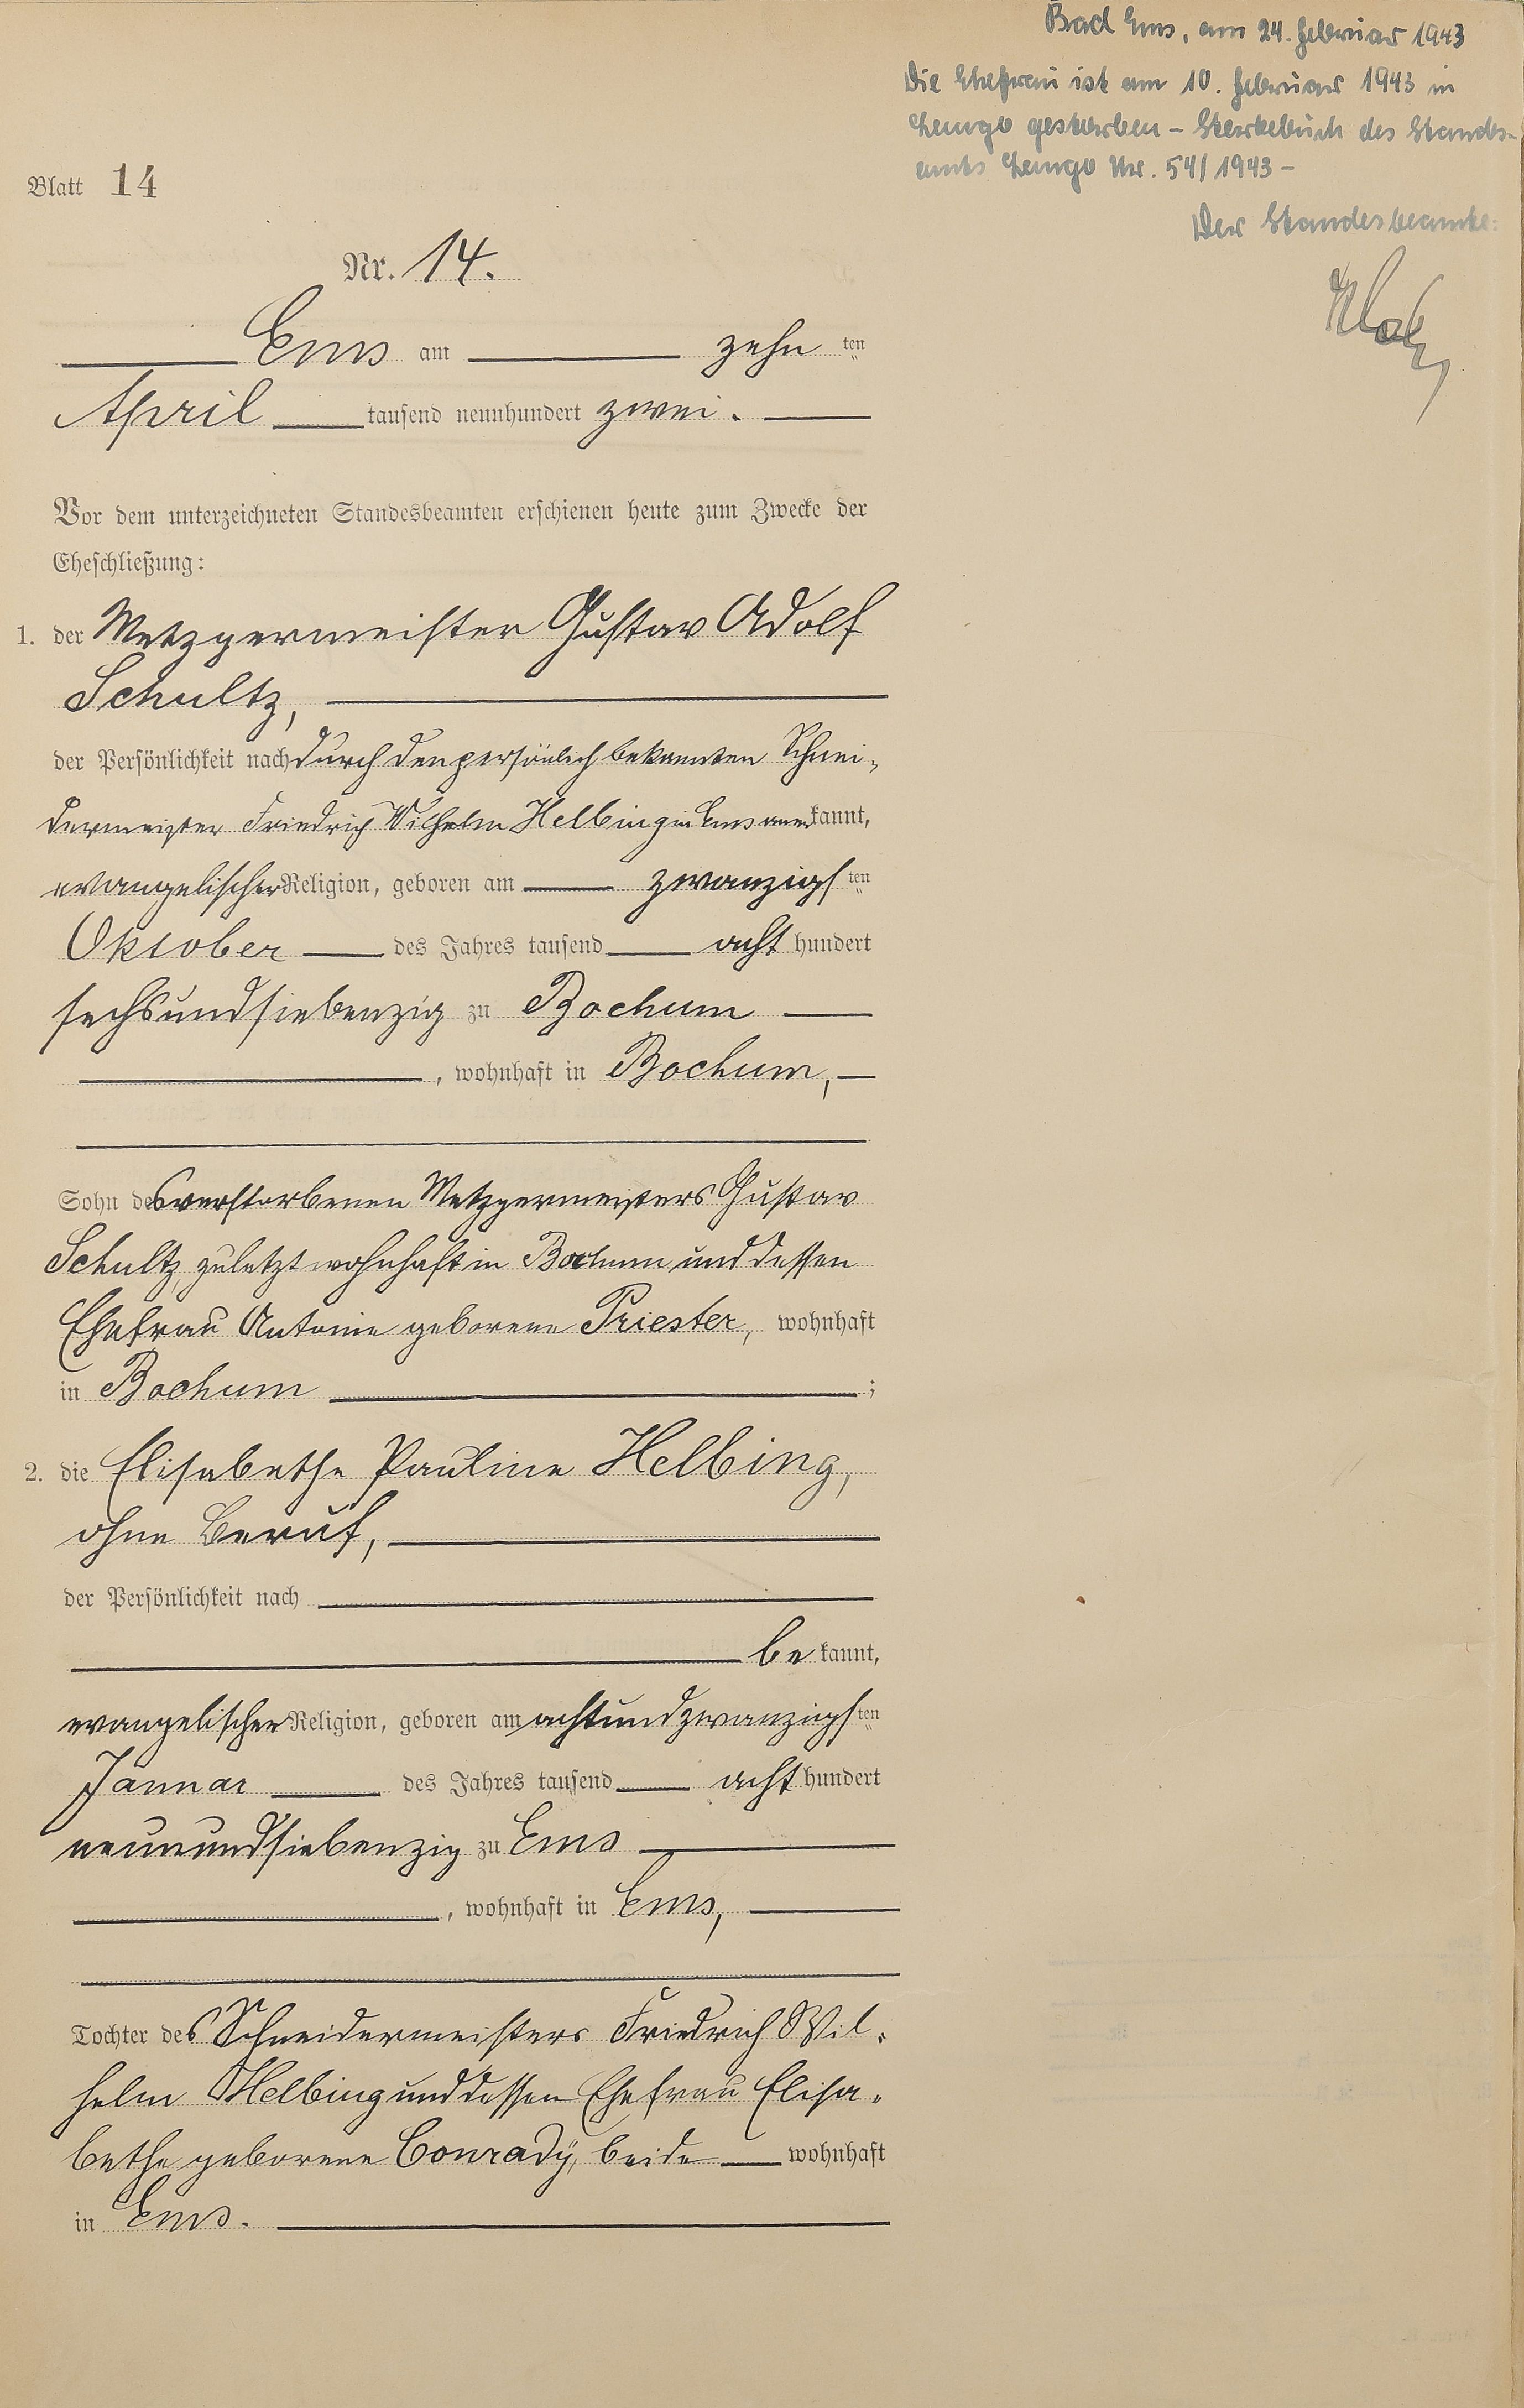 Bad Ems, am 24. Februar 1943
Die Ehefrau ist am 10. Februar 1943 in
Lemgo gestorben – Sterbebuch des Standes-
amts Lemgo Nr. 54/1943 –
Der Standesbeamte:
Blatt 14
Nr. 14.
Ems am zehn ten
April tausend neunhundert zwei.
Vor dem unterzeichneten Standesbeamten erschienen heute zum Zwecke der
Eheschließung:
1. der Metzgermeister Gustav Adolf
Schultz,
der Persönlichkeit nach durch den persönlich bekannten Schnei-
dermeister Friedrich Wilhelm Helbing in Ems anerkannt,
evangelischer Religion, geboren am zwanzigsten
Oktober des Jahres tausend acht hundert
sechsundsiebenzig zu Bochum
, wohnhaft in Bochum,
Sohn des verstorbenen Metzgermeisters Gustav
Schultz, zuletzt wohnhaft in Bochum und dessen
Ehefrau Antonie geborene Priester, wohnhaft
in Bochum ;
2. die Elisabethe Pauline Helbing,
ohne Beruf,
der Persönlichkeit nach
bekannt,
evangelischer Religion, geboren am achtundzwanzigsten
Januar des Jahres tausend acht hundert
neunundsiebenzig zu Ems
, wohnhaft in Ems,
Tochter des Schneidermeisters Friedrich Wil-
helm Helbing und dessen Ehefrau Elisa-
bethe geborene Conradÿ, beide wohnhaft
in Ems.